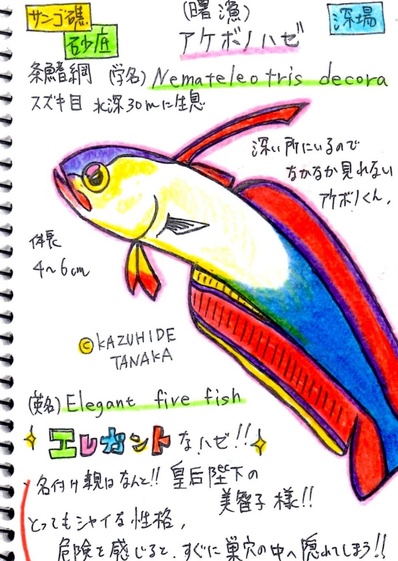 サンゴ礁
砂底
(曙漁)
アケボノハゼ
深場
条鰭綱 (学名) Nemateleotris decora
スズキ目 水深30mに生息
深い所にいるので
なかなか見れない
アケボノくん。
体長
4~6cm
©KAZUHIDE
TANAKA
(英名) Elegant fire fish
エレガントなハゼ!!
名付け親はなんと!! 皇后陛下の
美智子様!!
とってもシャイな性格。
危険を感じると、すぐに巣穴の中へ隠れてしまう!!